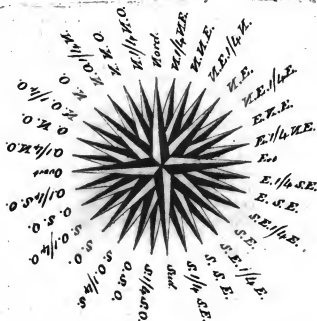 Nord.
N.1/4N.E.
N.N.E.
N.E.1/4N.
N.E.
N.E.1/4E.
E.N.E.
E.1/4N.E.
Est
E.1/4 S.E.
E. S.E.
S.E.1/4E.
S.E.
S.E.1/4E.
S. S. E.
S.1/4 S.E.
Sud.
S.1/4S.O.
O.S.O.
S.O.1/4S.
S.O.
S.O.1/4O.
O. S. O.
O.1/4S.O.
Ouest
O.1/4N.O.
O. N. O.
N.O.1/4O.
N. O.
N.O.1/4N.
N. N. O.
N.1/4N.O.